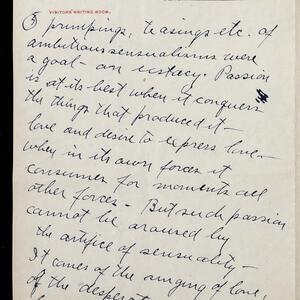 VISITORS' WRITING ROOM.
③ primpings, teasings etc. of
ambitious sensualisms were
a goal – an ecstacy. Passion
is at its best when it conquers
the things that produced it –
love and desire to express love –
when in its own forces it
consumes for moments all
other forces – But such passion
cannot be aroused by
the artifice of sensuality –
It comes of the singing of love,
of the desperate